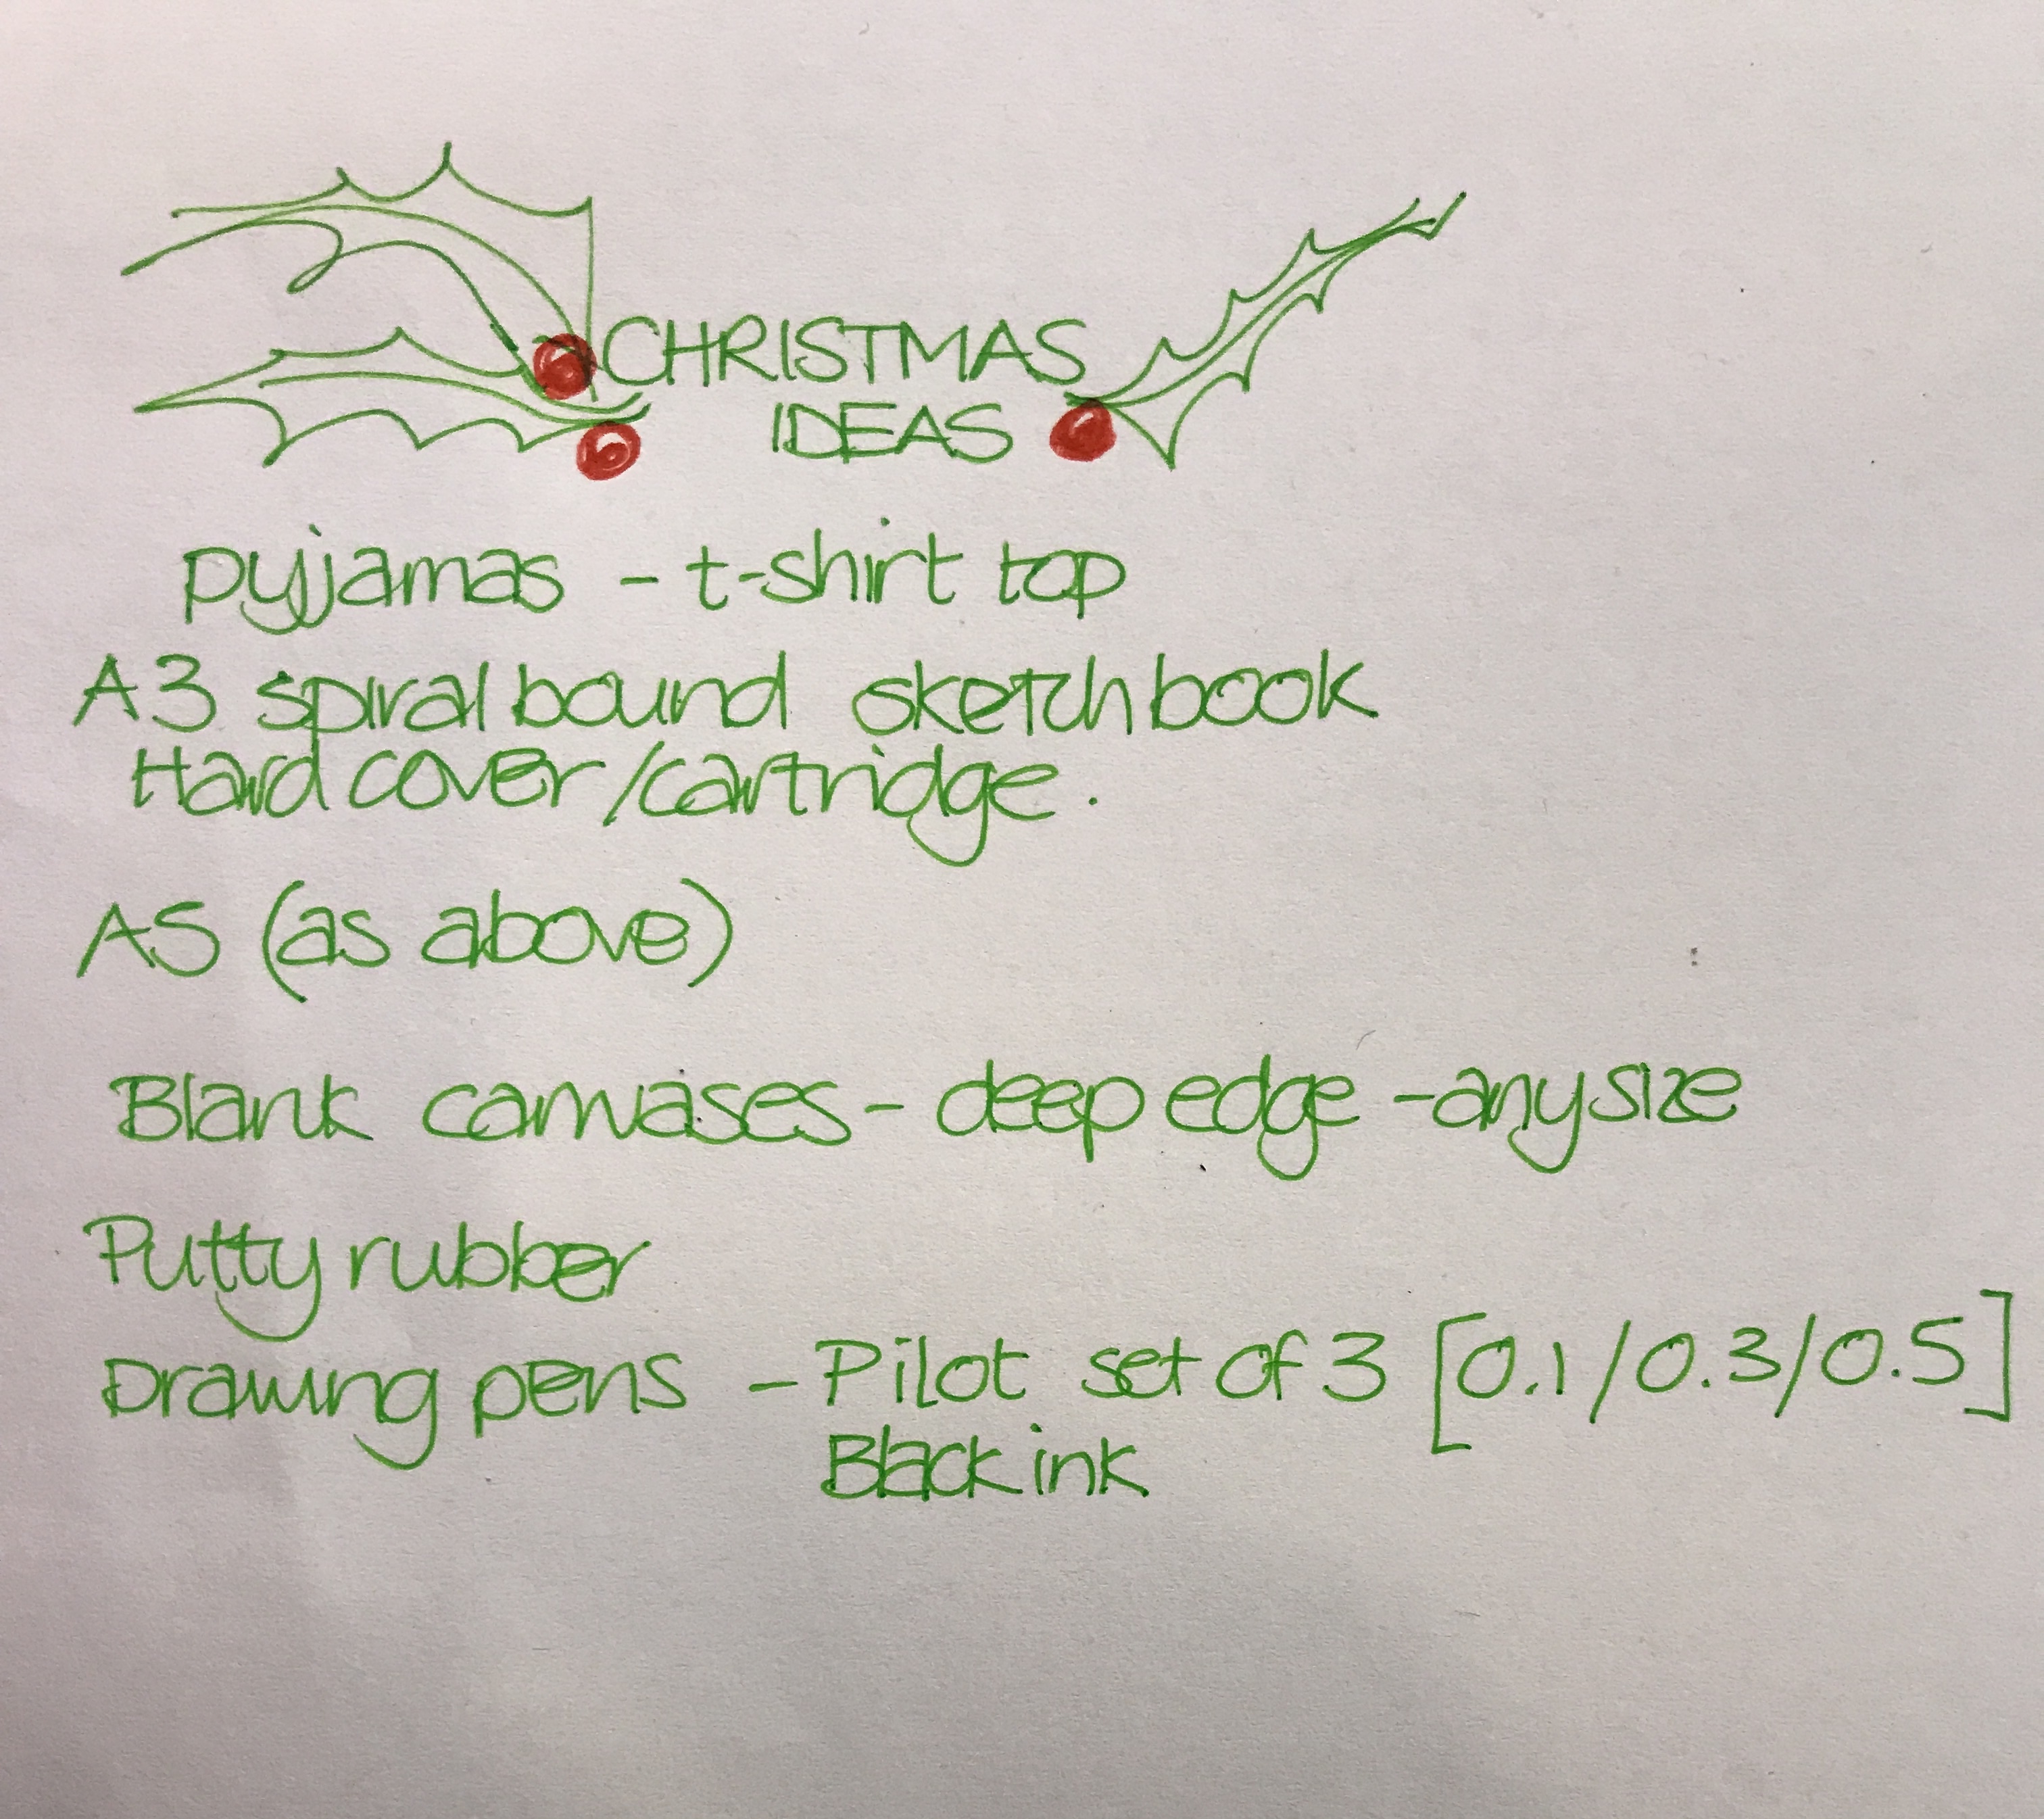 CHRISTMAS
IDEAS
pyjamas - t-shirt top
A3 spiral bound sketchbook
Hard cover/cartridge.
A5 (as above)
Blank canvases - deep edge - any size
Putty rubber
Drawing pens - Pilot set of 3 [0.1/0.3/0.5]
Black ink